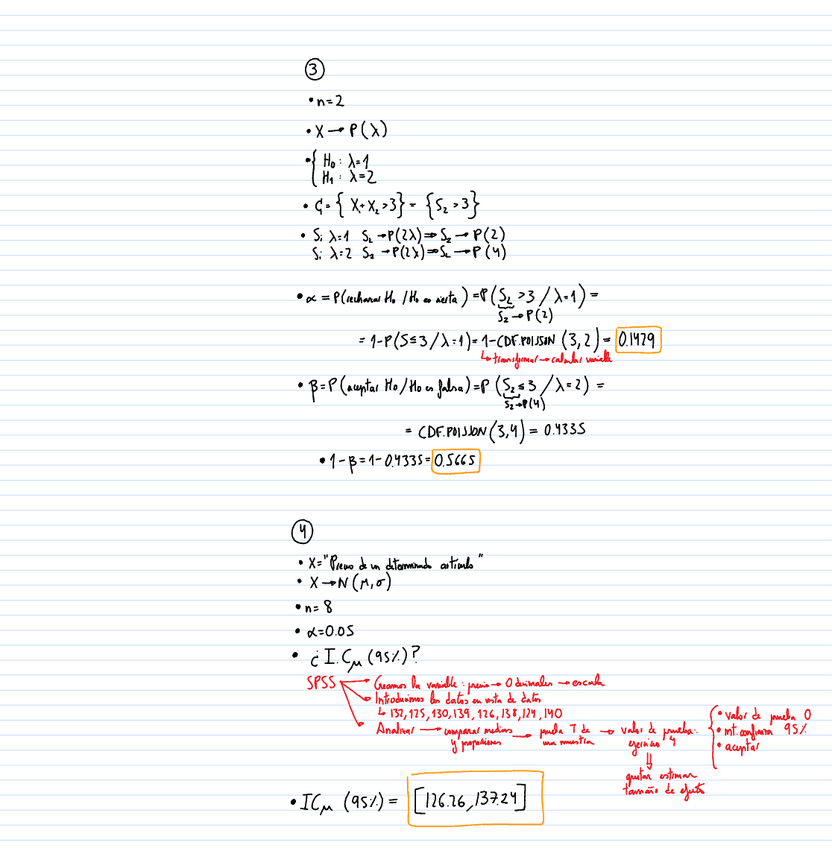 ③
• n=2
• X → P(λ)
• { H₀: λ=1
H₁: λ=2
• C = { X₁+X₂>3} = {S₂>3}
• Si λ=1 S₂ → P(2λ) ⇒ S₂ → P(2)
Si λ=2 S₂ → P(2λ) ⇒ S₂ → P(4)
• α = P(rechazar H₀ / H₀ es cierta) = P(S₂ >3 / λ=1) =
S₂ → P(2)
= 1-P(S≤3/λ=1) = 1-CDF.POISSON (3,2) = 0.1429
↳ transformar → calcular variable
• β = P(aceptar H₀/H₀ es falsa) = P (S₂ ≤ 3 / λ=2) =
S₂ → P(4)
= CDF.POISSON (3,4) = 0.4335
• 1-β = 1-0.4335 = 0.5665
④
• X="Precio de un determinado artículo"
• X → N(μ,σ)
• n= 8
• α=0.05
• ¿I.Cμ (95%)?
SPSS → Creamos la variable: precio → 0 decimales → escala
→ Introducimos los datos en vista de datos
↳ 132, 125, 130, 139, 126, 138, 124, 140
→ Analizar → comparar medias y proporciones → prueba T de una muestra → valor de prueba: ejercicio 4
{ • valor de prueba 0
• int. confianza 95%
• aceptar
⇓
quitar estimar
tamaño de efecto
• ICμ (95%) = [126.26, 137.24]